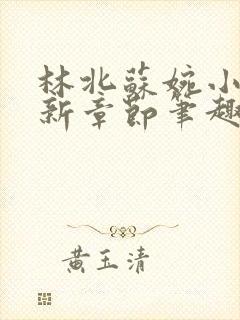 林北蘇婉小
新章節筆趣
黃玉清